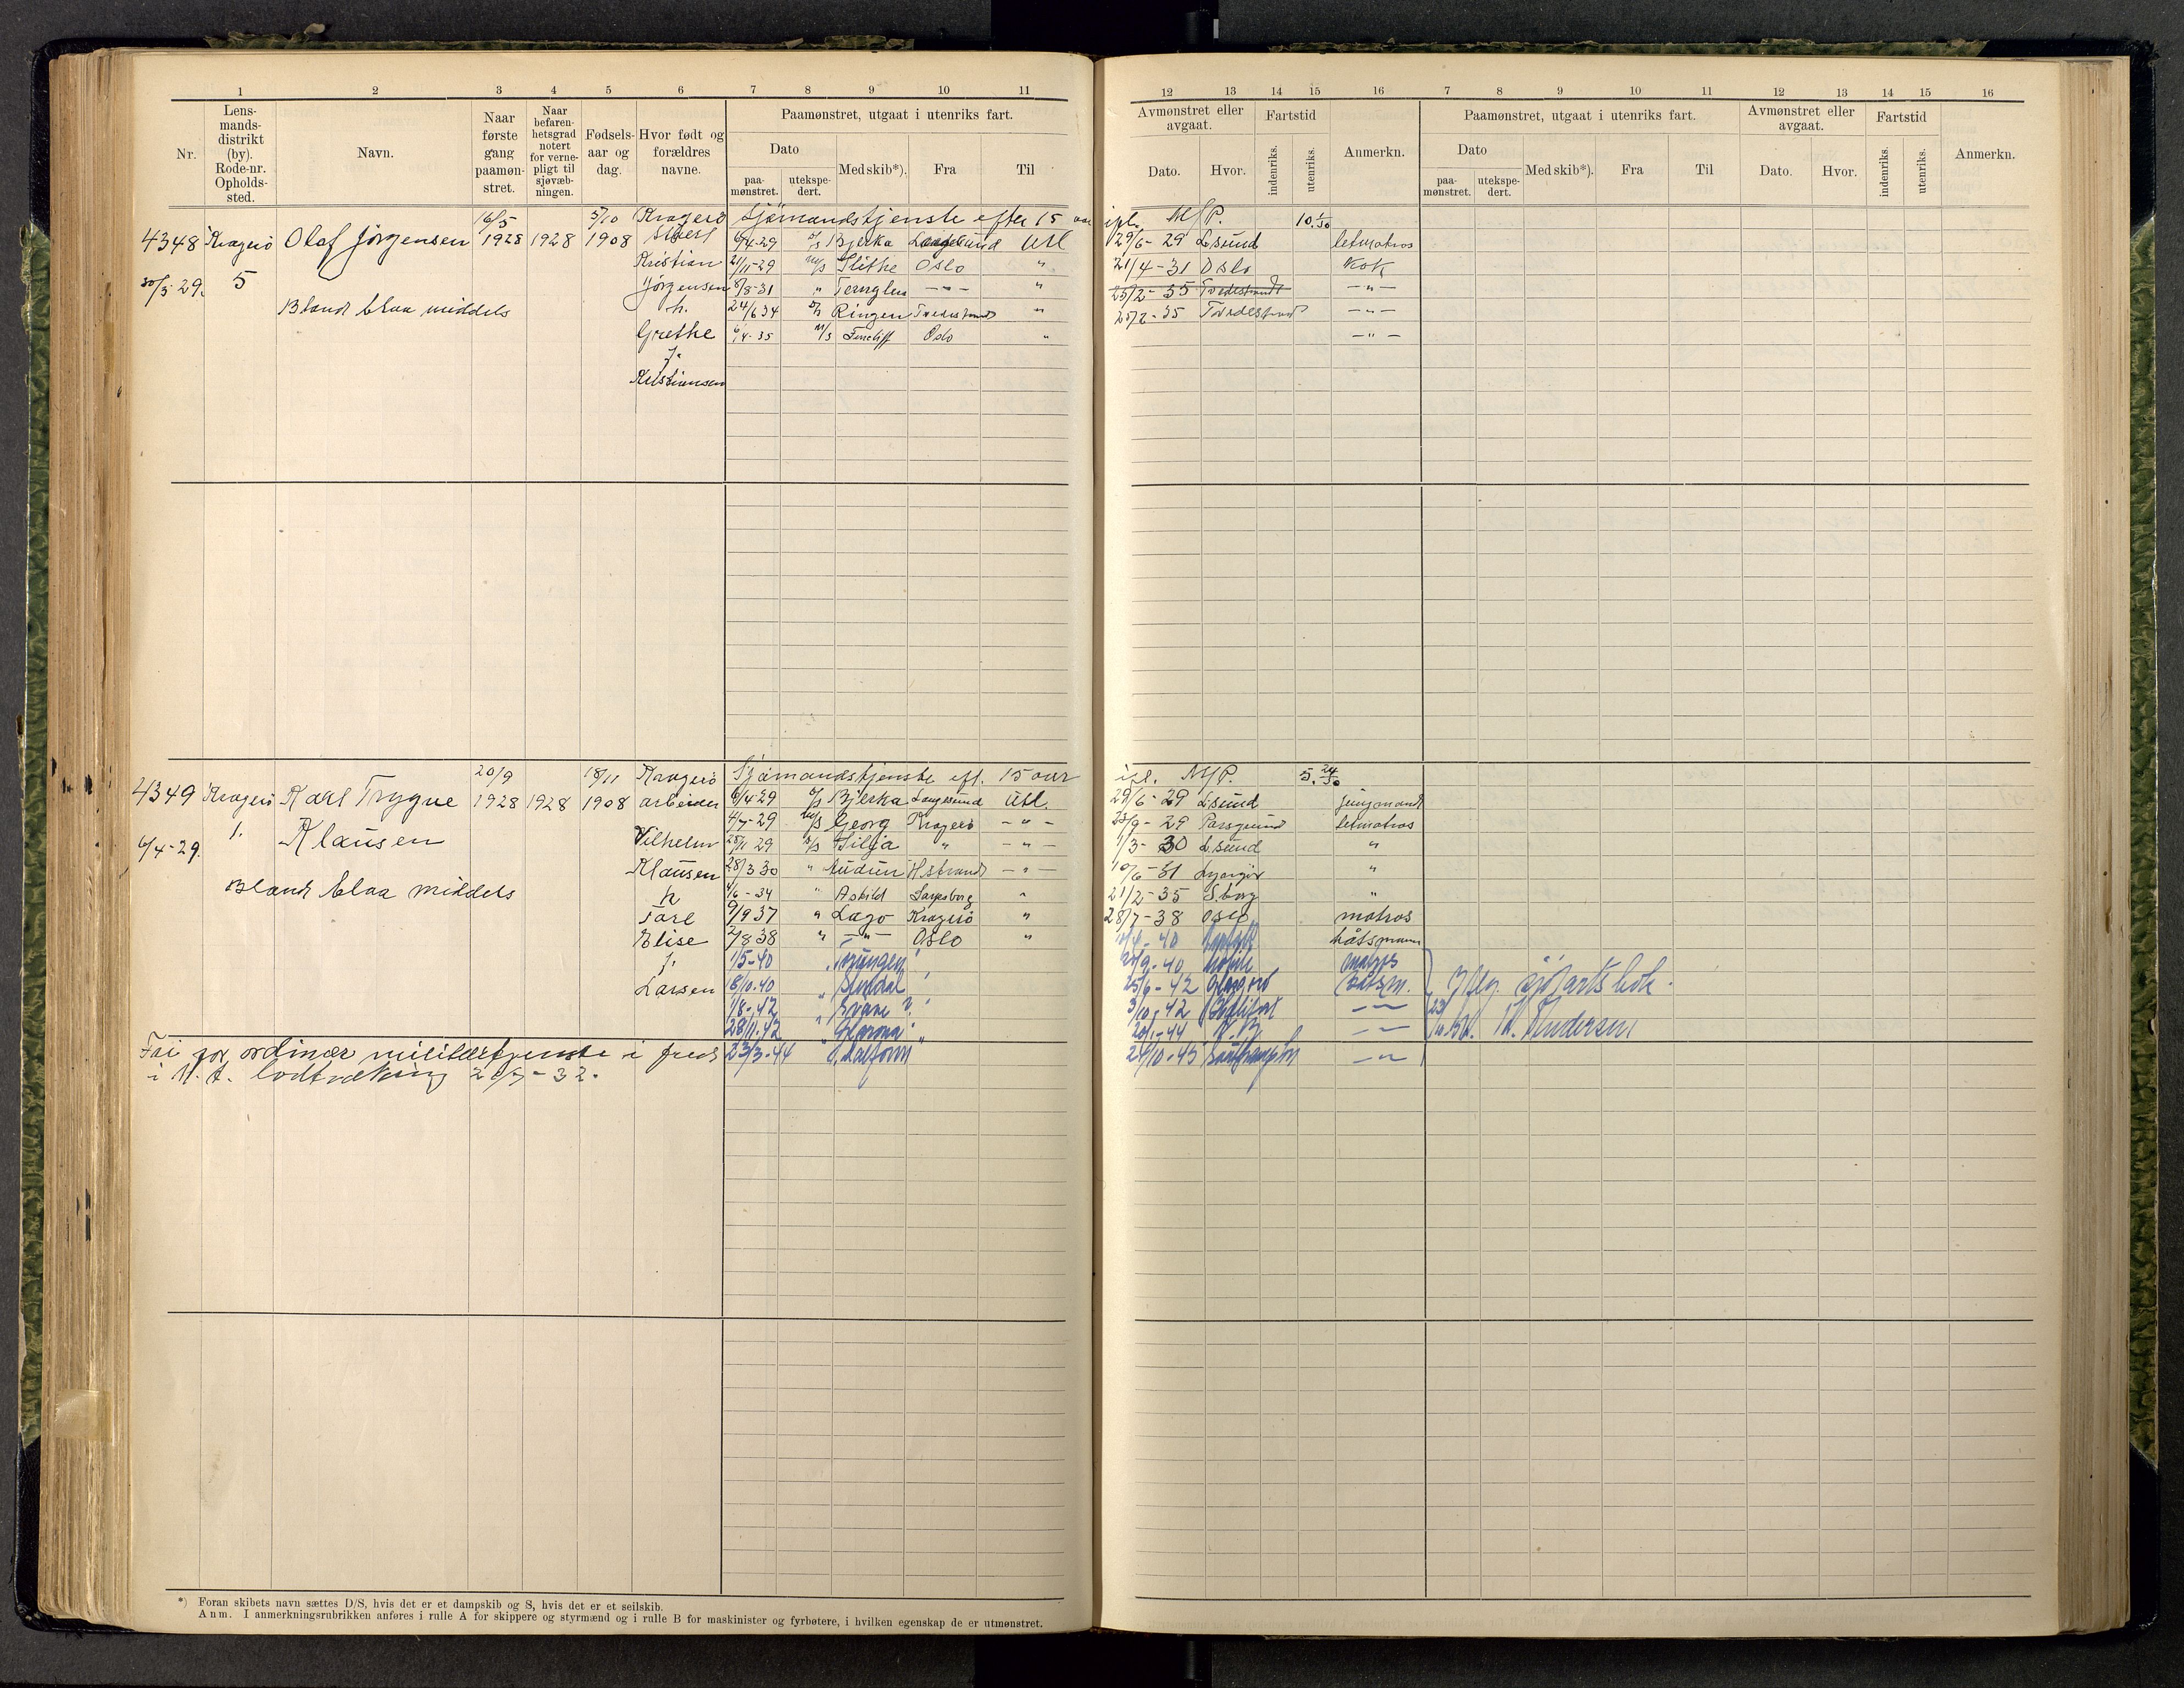 1 2 3 4 5 6 7 8 9 10 11
Nr.
Lens-
mands-
distrikt
(by).
Rode-nr.
Opholds-
sted.
Navn.
Naar
første
gang
paamøn-
stret.
Naar
befaren-
hetsgrad
notert
for verne-
pligt til
sjøvæb-
ningen.
Fødsels-
aar og
dag.
Hvor født og
forældres
navne.
Paamønstret, utgaat i utenriks fart.
Dato
paa-
mønstret.
utekspe-
dert.
Med skib*).
Fra
Til
16/5 5/10 Kragerö Sjömandstjenste efter 15 aar
4348 Kragerö Olaf Jörgensen 1928 1928 1908 6/4-29 D/S Bjerka Langesund Utl
Kristian 21/11-29 M/S Slithe Oslo "
30/3-29. 5 Jörgensen 8/8-31 " Ternglen -"- "
Blond blaa middels h. 24/6 34 Ringen Tvedestrand "
Grethe 6/4-35 M/S Ferncliff Oslo "
f.
Kristiansen
20/9 18/11 Kragerö Sjömandstjenste eft. 15 aar
4349 Kragerö Karl Trygve 1928 1928 1908 arbeider 6/4-29 D/S Bjerka Langesund Utl.
1. 4/7-29 Georg Kragerö -"-
6/4-29. Klausen Vilhelm 25/11 29 D/S Silja " -"-
Klausen 28/3 30 " Audun Hstrand -"-
Blond blaa middels h 4/6-34 " Askild Sarpsborg "
Tore 9/9 37 " Lago Kragerö "
Elise 2/8 38 " -"- Oslo "
f. 1/5-40
Larsen 18/10-40
1/8-42
28/11-42
Fri for ordinær militærtjenste i fred 23/3-44
i H. t. lodtrækning
*) Foran skibets navn sættes D/S, hvis det er et dampskib og S, hvis det er et seilskib.
Anm. I anmerkningsrubrikken anføres i rulle A for skippere og styrmænd og i rulle B for maskinister og fyrbøtere, i hvilken egenskap de er utmønstret.
12 13 14 15 16 7 8 9 10 11 12 13 14 15 16
Avmønstret eller
avgaat.
Dato.
Hvor.
Fartstid
indenriks.
utenriks.
Anmerkn.
Paamønstret, utgaat i utenriks fart.
Dato
paa-
mønstret.
utekspe-
dert.
Med skib*).
Fra
Til
Avmønstret eller
avgaat.
Dato.
Hvor.
Fartstid
indenriks.
utenriks.
Anmerkn.
ipl. M/P. 10.
29/6-29 L.sund letmatros
21/4-31 Oslo kok
25/2-35 Tvedestrand -"-
25/2-35 Tvedestrand -"-
-"-
ipl. M/P. 5. 24/30
29/6-29 L.sund jungmand
23/9-29 Porsgrund letmatros
1/3-30 L.sund "
10/6-31 Lyngör "
21/2-35 S.borg "
28/7-38 Oslo matros
båtsmann
9-40 matros
25/6-42 Glasgow båtsm. Iflg. sjöfartsbok.
3/10-42 -"-
20/1-44 N.Y. -"- Andersen
24/10-45 Southampton -"-